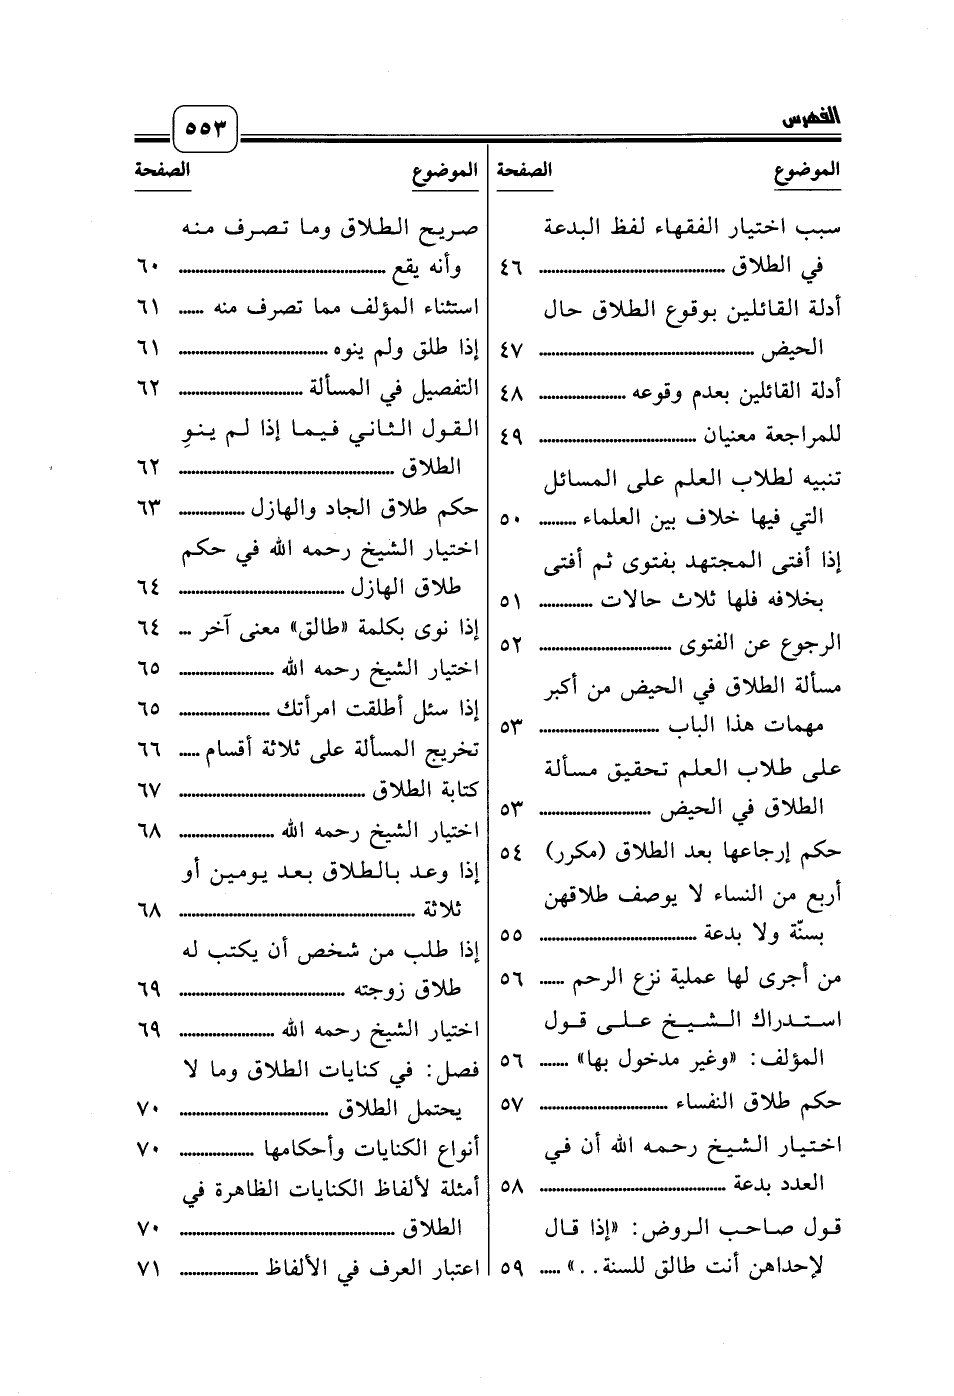 الفهرس
٥٥٣
الموضوع الصفحة
سبب اختيار الفقهاء لفظ البدعة
في الطلاق ........ ٤٦
أدلة القائلين بوقوع الطلاق حال
الحيض ........ ٤٧
أدلة القائلين بعدم وقوعه ........ ٤٨
للمراجعة معنيان ........ ٤٩
تنبيه لطلاب العلم على المسائل
التي فيها خلاف بين العلماء ........ ٥٠
إذا أفتى المجتهد بفتوى ثم أفتى
بخلافه فلها ثلاث حالات ........ ٥١
الرجوع عن الفتوى ........ ٥٢
مسألة الطلاق في الحيض من أكبر
مهمات هذا الباب ........ ٥٣
على طلاب العلم تحقيق مسألة
الطلاق في الحيض ........ ٥٣
حكم إرجاعها بعد الطلاق (مكرر) ٥٤
أربع من النساء لا يوصف طلاقهن
بسنّة ولا بدعة ........ ٥٥
من أجرى لها عملية نزع الرحم ...... ٥٦
استدراك الشيخ على قول
المؤلف: «وغير مدخول بها» ....... ٥٦
حكم طلاق النفساء ........ ٥٧
اختيار الشيخ رحمه الله أن في
العدد بدعة ........ ٥٨
قول صاحب الروض: «إذا قال
لإحداهن أنت طالق للسنة..» ..... ٥٩
الموضوع الصفحة
صريح الطلاق وما تصرف منه
وأنه يقع ........ ٦٠
استثناء المؤلف مما تصرف منه ...... ٦١
إذا طلق ولم ينوه ........ ٦١
التفصيل في المسألة ........ ٦٢
القول الثاني فيما إذا لم ينوِ
الطلاق ........ ٦٢
حكم طلاق الجاد والهازل ........ ٦٣
اختيار الشيخ رحمه الله في حكم
طلاق الهازل ........ ٦٤
إذا نوى بكلمة «طالق» معنى آخر ... ٦٤
اختيار الشيخ رحمه الله ........ ٦٥
إذا سئل أطلقت امرأتك ........ ٦٥
تخريج المسألة على ثلاثة أقسام ..... ٦٦
كتابة الطلاق ........ ٦٧
اختيار الشيخ رحمه الله ........ ٦٨
إذا وعد بالطلاق بعد يومين أو
ثلاثة ........ ٦٨
إذا طلب من شخص أن يكتب له
طلاق زوجته ........ ٦٩
اختيار الشيخ رحمه الله ........ ٦٩
فصل: في كنايات الطلاق وما لا
يحتمل الطلاق ........ ٧٠
أنواع الكنايات وأحكامها ........ ٧٠
أمثلة لألفاظ الكنايات الظاهرة في
الطلاق ........ ٧٠
اعتبار العرف في الألفاظ ........ ٧١